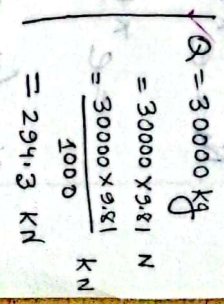 Q = 30000 kg
= 30000 × 9.81 N
= 30000 × 9.81 / 1000 KN
= 294.3 KN